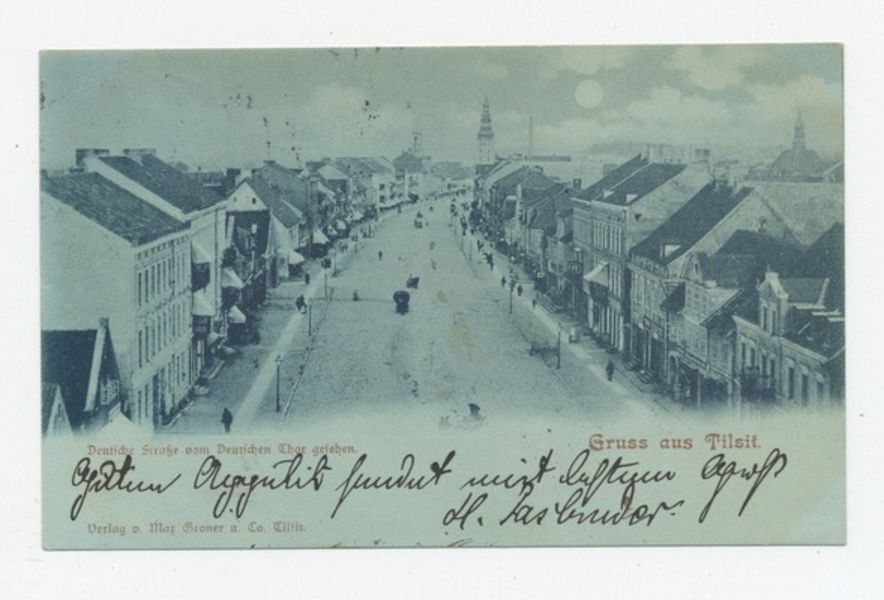 Deutsche Straße vom Deutschen Thor gesehen.
Gruss aus Tilsit.
Guten Appetit sendet mit bestem Gruß
H.
Verlag v. Max Groner u. Co. Tilsit.